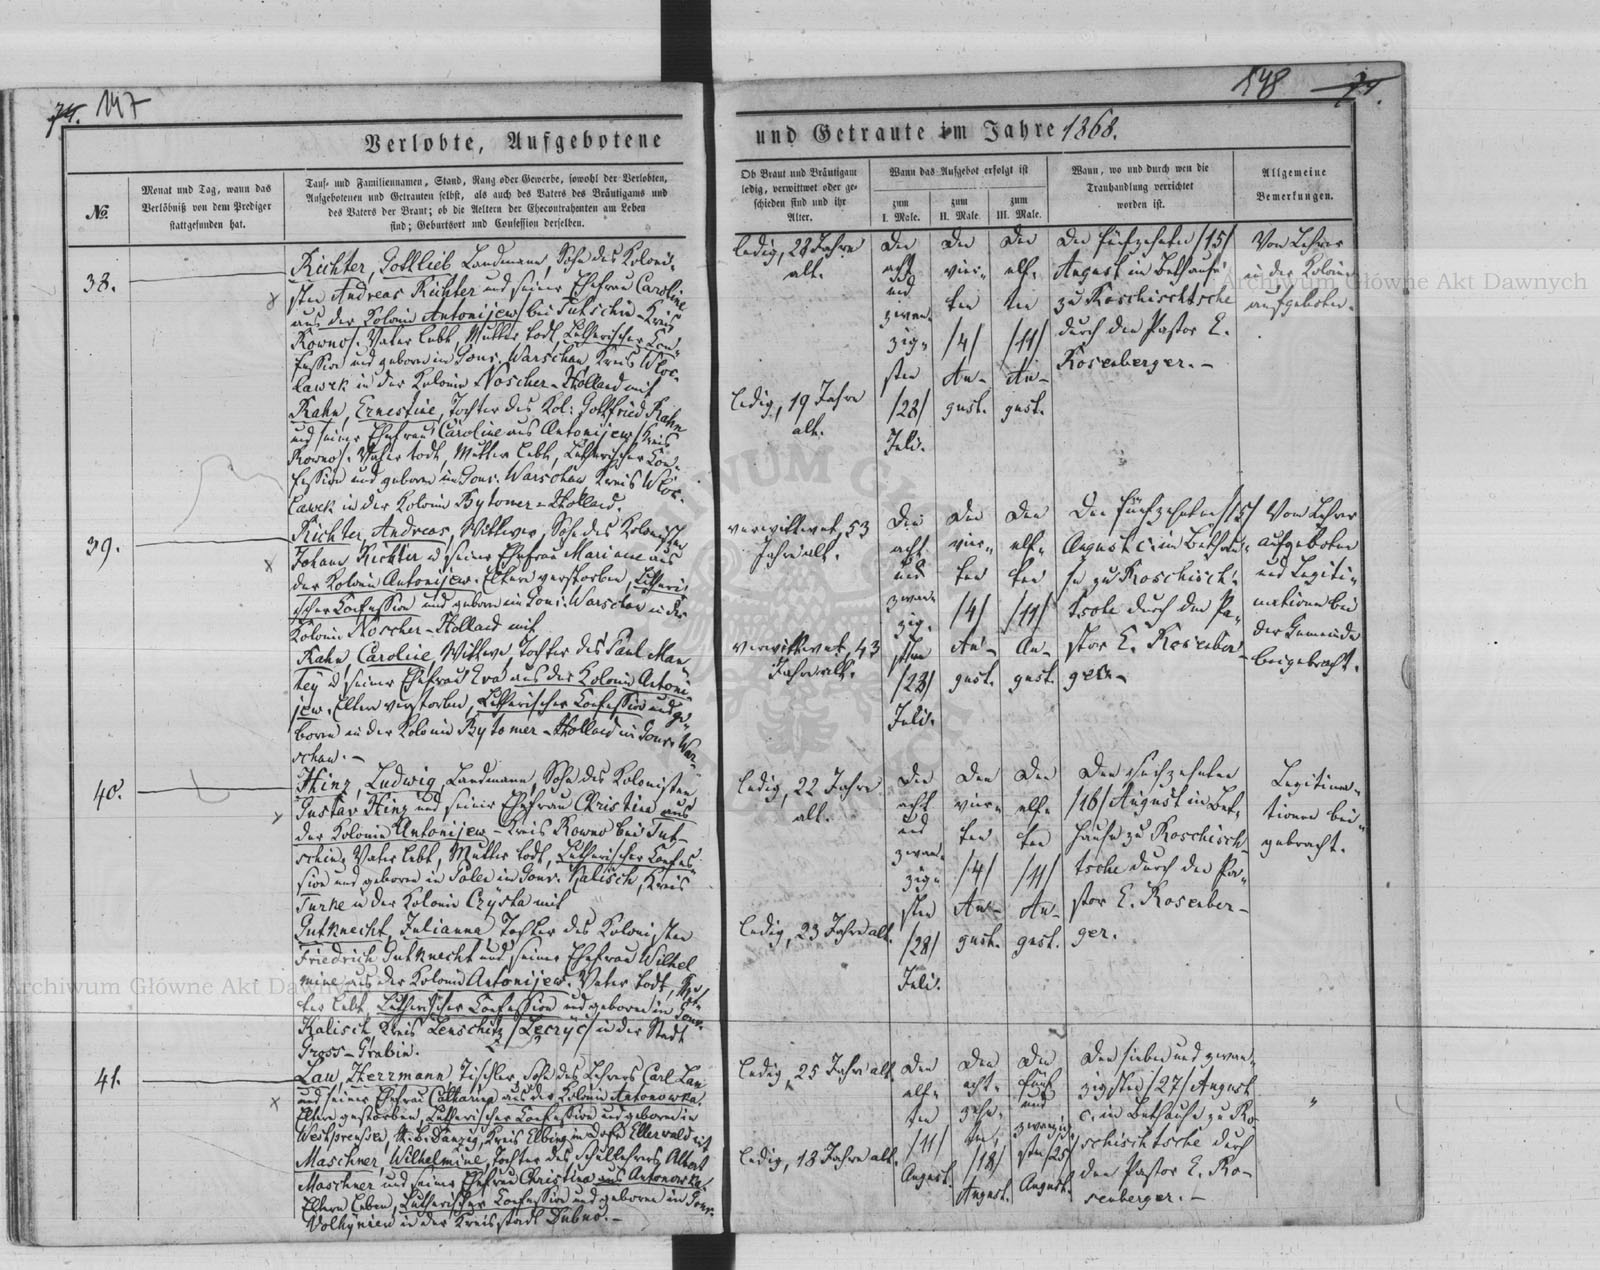 74. 147
148 74.
Verlobte, Aufgebotene
und Getraute im Jahre 1868.
No.
Monat und Tag, wann das
Verlöbniß von dem Prediger
stattgefunden hat.
Tauf- und Familiennamen, Stand, Rang oder Gewerbe, sowohl der Verlobten,
Aufgebotenen und Getrauten selbst, als auch des Vaters des Bräutigams und
des Vaters der Braut; ob die Aeltern der Ehecontrahenten am Leben
sind; Geburtsort und Confession derselben.
Ob Braut und Bräutigam
ledig, verwittwet oder ge-
schieden sind und ihr
Alter.
Wann das Aufgebot erfolgt ist
zum
I. Male.
zum
II. Male.
zum
III. Male.
Wann, wo und durch wen die
Trauhandlung verrichtet
worden ist.
Allgemeine
Bemerkungen.
38.
Richter, Gottlieb Landmann, Sohn des Koloni-
sten Andreas Richter und seiner Ehefrau Caroline
aus der Kolonie Antonijew /bei Tutschin - Kreis
Rowno/. Vater lebt, Mutter todt, Lutherischer Con-
fession und geboren im Gouv. Warschau, Kreis Wloc-
lawek in der Kolonie Noscher-Holland mit
Rahn, Ernestine, Tochter des Kol: Gottfried Rahn
und seiner Ehefrau Caroline aus Antonijew /Kreis
Rowno/. Vater todt, Mutter lebt, Lutherischer Con-
fession und geboren im Gouv. Warschau Kreis Wloc-
lawek in der Kolonie Bytomer-Holland.
ledig, 28 Jahre
alt.
ledig, 19 Jahre
alt.
Den
acht
und
zwan-
zig-
sten
/28/
Juli.
Den
vier-
ten
/4/
Au-
gust.
Den
elf-
ten
/11/
Au-
gust.
Den fünfzehnten /15/
August im Bethause
zu Roschischtsche
durch den Pastor E.
Rosenberger. -
Vom Lehrer
in der Kolonie
aufgeboten.
39.
Richter, Andreas, Wittwer, Sohn des Kolonisten
Johann Richter u seiner Ehefrau Mariane aus
der Kolonie Antonijew. Eltern verstorben, Lutheri-
scher Confession und geboren im Gouv. Warschau in der
Kolonie Noscher-Holland mit
Rahn, Caroline, Wittwe, Tochter des Paul Man-
tey u seiner Ehefrau Eva aus der Kolonie Antoni-
jew. Eltern verstorben, Lutherischer Confession und ge-
boren in der Kolonie Bytomer-Holland im Gouv. War-
schau. -
verwittwet, 53
Jahre alt.
verwittwet, 43
Jahre alt.
Den
acht
und
zwan-
zig-
sten
/28/
Juli.
Den
vier-
ten
/4/
Au-
gust.
Den
elf-
ten
/11/
Au-
gust.
Den fünfzehnten /15/
August c. im Bethau-
se zu Roschisch-
tsche durch den Pa-
stor E. Rosenber-
ger. -
Vom Lehrer
aufgeboten
und Legiti-
mationen bei
der Gemeinde
beigebracht.
40.
Hinz, Ludwig, Landmann, Sohn des Kolonisten
Gustav Hinz und seiner Ehefrau Christine aus
der Kolonie Antonijew - Kreis Rowno bei Tut-
schin. Vater lebt, Mutter todt, Lutherischer Confes-
sion und geboren in Polen im Gouv. Kalisch, Kreis
Turke in der Kolonie Czysta mit
Gutknecht, Julianne, Tochter des Kolonisten
Friedrich Gutknecht und seiner Ehefrau Wilhel
mine aus der Kolonie Antonijew. Vater todt, Mut-
ter lebt, Lutherischer Confession und geboren im Gouv.
Kalisch, Kreis Lenschitz /Lecryc/ in der Stadt
Gross-Grabin.
ledig, 22 Jahre
alt.
ledig, 23 Jahre alt.
Den
acht
und
zwan-
zig-
sten
/28/
Juli.
Den
vier-
ten
/4/
Au-
gust.
Den
elf-
ten
/11/
Au-
gust.
Den sechzehnten
/16/ August im Bet-
hause zu Roschisch-
tsche durch den Pa-
stor E. Rosenber-
ger.
Legitima-
tionen bei-
gebracht.
41.
Lau, Herrmann Tischler, Sohn des Lehrers Carl Lau
und seiner Ehefrau Catharina aus der Kolonie Antonowka.
Eltern gestorben, Lutherischer Confession und geboren in
Westpreussen, R. B. Danzig, Kreis Elbing im Dorfe Ellerwald mit
Maschner, Wilhelmine, Tochter des Schullehrers Albert
Maschner und seiner Ehefrau Christina aus Antonowka.
Eltern leben, Lutherischer Confession und geboren im Gouv.
Volhynien in der Kreisstadt Dubno. -
ledig, 25 Jahre alt.
ledig, 18 Jahre alt.
Den
elf-
ten
/11/
August.
Den
acht-
zehn-
ten
/18/
August.
Den
fünf
und
zwanzig-
sten /25/
August.
Den sieben und zwan-
zigsten /27/ August
c. im Bethause zu Ro-
schischtsche durch
den Pastor E. Ro-
senberger. -
"
Archiwum Główne Akt Dawnych
Archiwum Główne Akt Dawnych